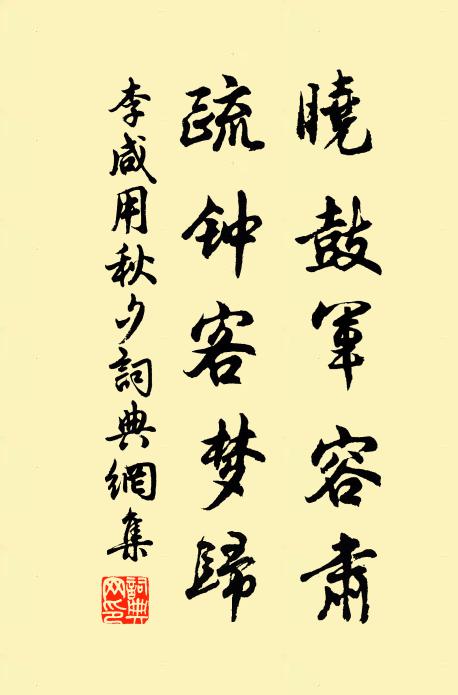 曉鼓軍容肅
疏钟客梦歸
李咸用秋夕詞典網集
詞典網印